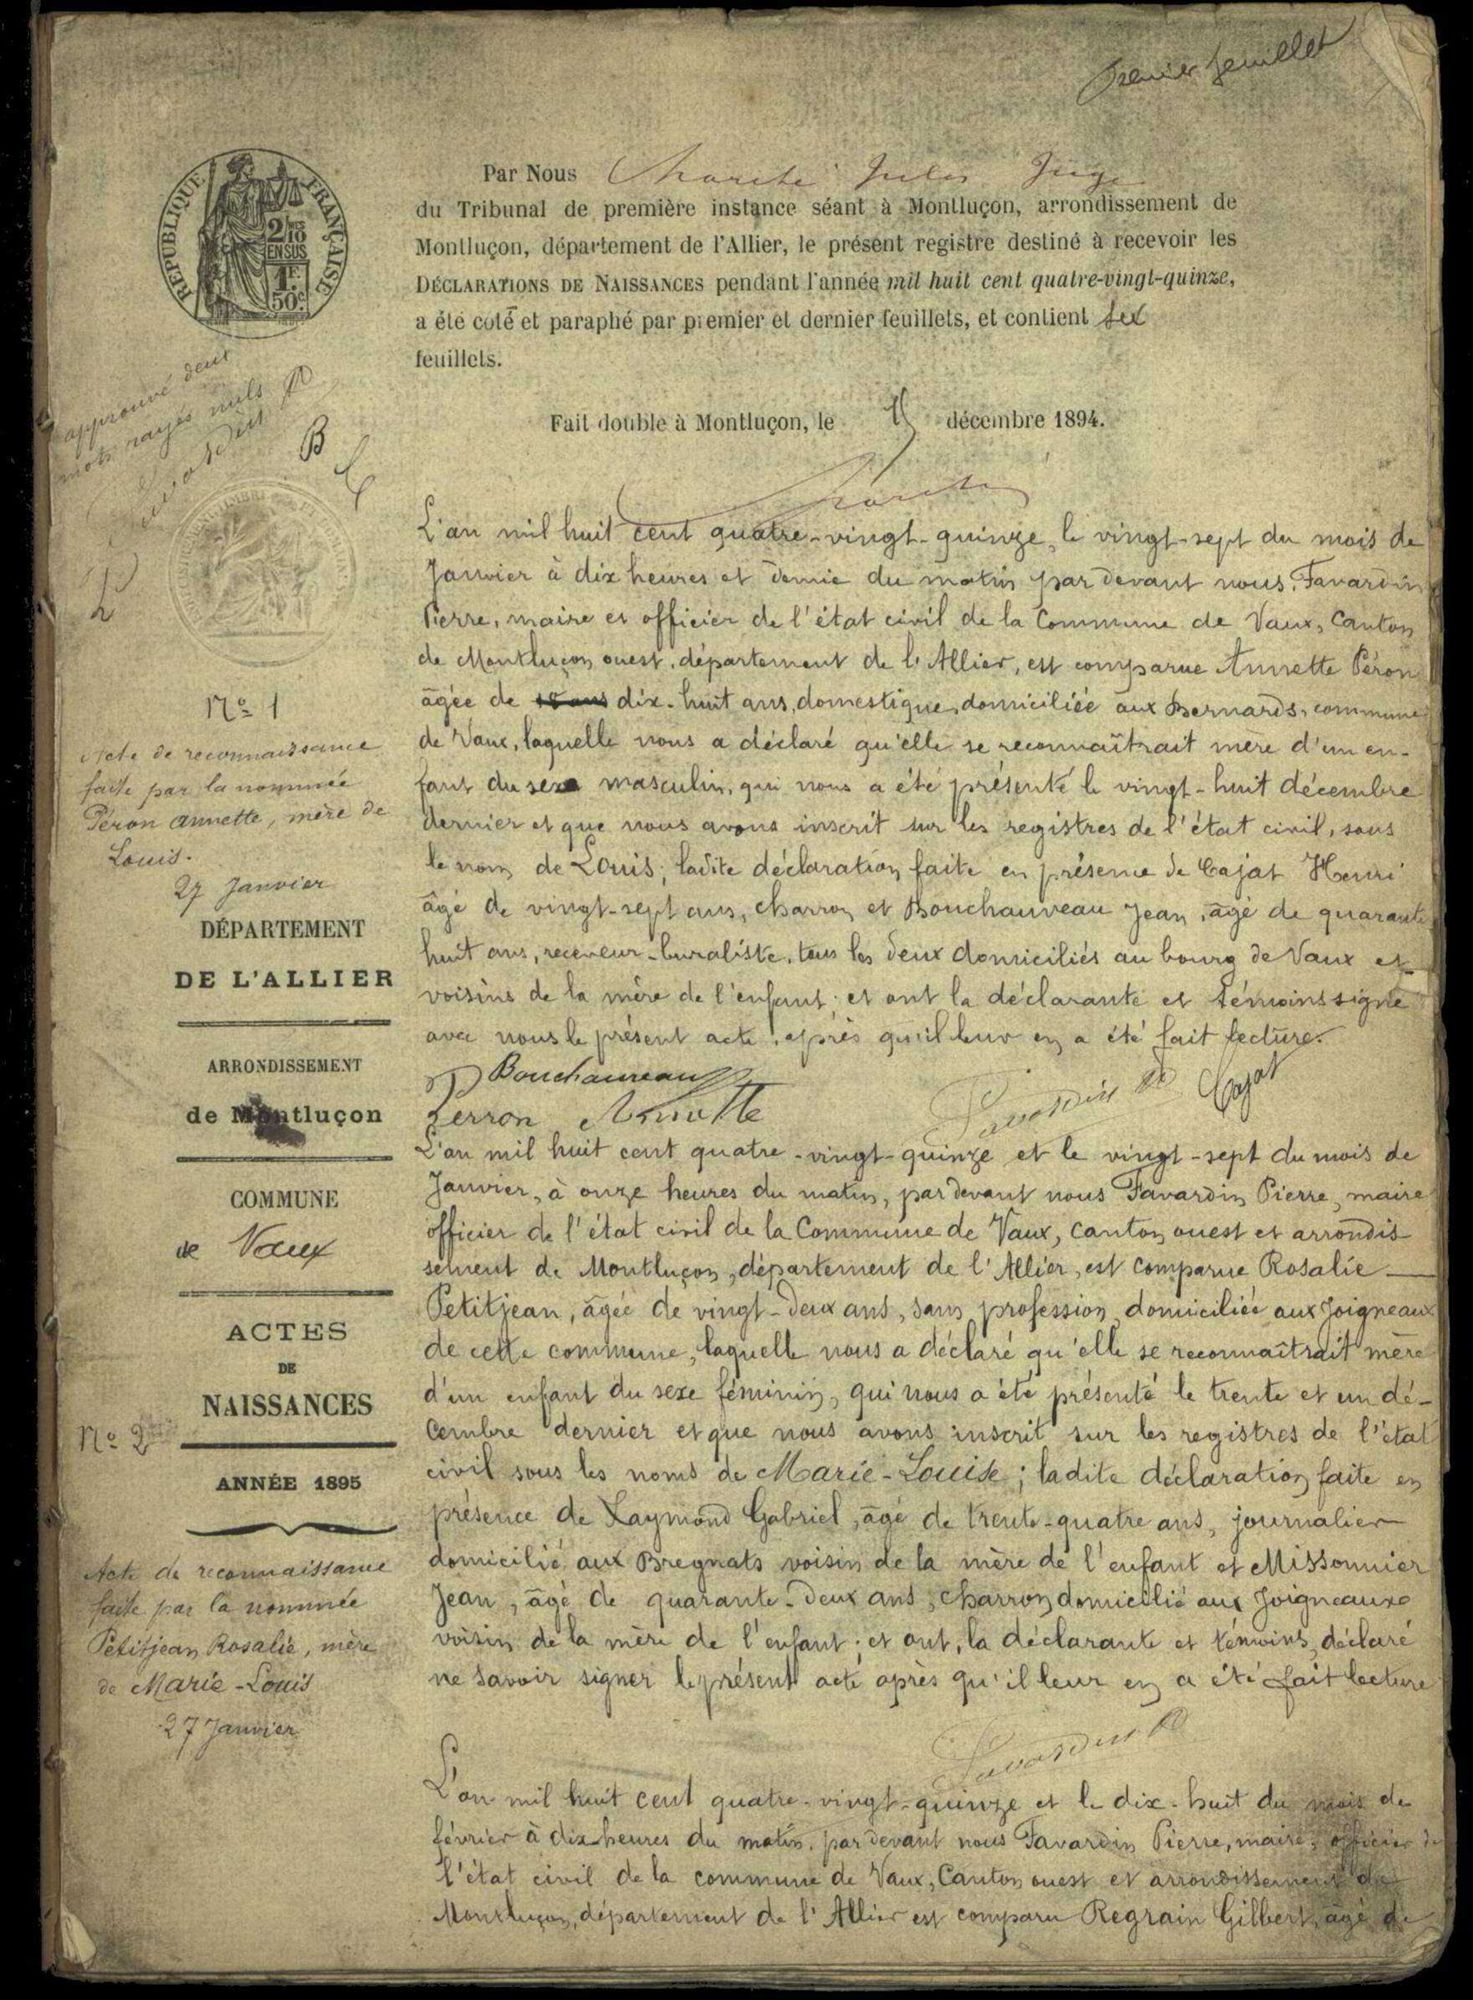 Premier feuillet
RÉPUBLIQUE FRANÇAISE
2/10
EN SUS
1F.
50c.
Par Nous Charité Jules Juge
du Tribunal de première instance séant à Montluçon, arrondissement de
Montluçon, département de l'Allier, le présent registre destiné à recevoir les
DÉCLARATIONS DE NAISSANCES pendant l'année mil huit cent quatre-vingt-quinze,
a été coté et paraphé par premier et dernier feuillets, et contient six
feuillets.
Fait double à Montluçon, le 15 décembre 1894.
approuvé deux
mots rayés nuls
Favardin
B
C
L'an mil huit cent quatre-vingt-quinze, le vingt-sept du mois de
Janvier à dix heures et demie du matin par devant nous, Favardin
Pierre, maire et officier de l'état civil de la Commune de Vaux, Canton
de Montluçon ouest, département de l'Allier, est comparue Annette Péron
âgée de 18 ans dix-huit ans, domestique, domiciliée aux Bernards, commune
de Vaux, laquelle nous a déclaré qu'elle se reconnaîtrait mère d'un en-
fant du sexe masculin, qui nous a été présenté le vingt-huit décembre
dernier et que nous avons inscrit sur les registres de l'état civil, sous
le nom de Louis; ladite déclaration faite en présence de Cajat Henri
âgé de vingt-sept ans, charron et Bouchauveau Jean, âgé de quarante
huit ans, receveur-buraliste, tous les deux domiciliés au bourg de Vaux et
voisins de la mère de l'enfant; et ont la déclarante et témoins signé
avec nous le présent acte, après qu'il leur en a été fait lecture.
Bouchauveau
Perron Annette Favardin P Cajat
N° 1
Acte de reconnaissance
faite par la nommée
Péron annette, mère de
Louis.
27 Janvier
DÉPARTEMENT
DE L'ALLIER
ARRONDISSEMENT
de Montluçon
COMMUNE
de Vaux
ACTES
DE
NAISSANCES
N° 2
ANNÉE 1895
Acte de reconnaissance
faite par la nommée
Petitjean Rosalie, mère
de Marie-Louis
27 Janvier
L'an mil huit cent quatre-vingt-quinze et le vingt-sept du mois de
Janvier, à onze heures du matin, par devant nous Favardin Pierre, maire
officier de l'état civil de la Commune de Vaux, canton ouest et arrondis-
sement de Montluçon, département de l'Allier, est comparue Rosalie
Petitjean, âgée de vingt-deux ans, sans profession, domiciliée aux Joigneaux
de cette commune, laquelle nous a déclaré qu'elle se reconnaîtrait mère
d'un enfant du sexe féminin, qui nous a été présenté le trente et un dé-
cembre dernier et que nous avons inscrit sur les registres de l'état
civil sous les noms de Marie-Louise; ladite déclaration faite en
présence de Raymond Gabriel, âgé de trente-quatre ans, journalier
domicilié aux Bregnats voisin de la mère de l'enfant et Missonnier
Jean, âgé de quarante-deux ans, charron domicilié aux Joigneaux
voisin de la mère de l'enfant; et ont, la déclarante et témoins, déclaré
ne savoir signer le présent acte après qu'il leur en a été fait lecture
Favardin P
L'an mil huit cent quatre-vingt-quinze et le dix-huit du mois de
février à dix heures du matin, par devant nous Favardin Pierre, maire, officier de
l'état civil de la commune de Vaux, Canton ouest et arrondissement de
Montluçon, département de l'Allier est comparu Regrain Gilbert, âgé de